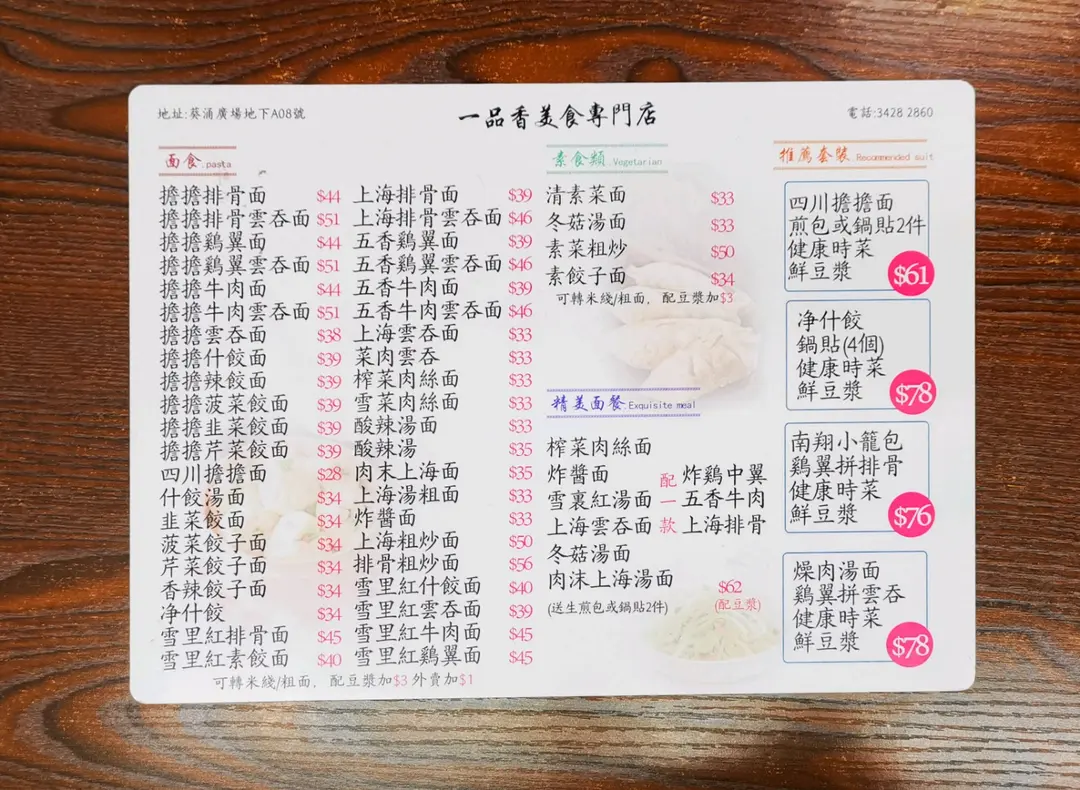 地址:葵涌廣場地下A08號
一品香美食專門店
電話:3428 2860
面食.pasta
擔擔排骨面 $44
擔擔排骨雲吞面 $51
擔擔鷄翼面 $44
擔擔鷄翼雲吞面 $51
擔擔牛肉面 $44
擔擔牛肉雲吞面 $51
擔擔雲吞面 $38
擔擔什餃面 $39
擔擔辣餃面 $39
擔擔菠菜餃面 $39
擔擔韭菜餃面 $39
擔擔芹菜餃面 $39
四川擔擔面 $28
什餃湯面 $34
韭菜餃面 $34
菠菜餃子面 $34
芹菜餃子面 $34
香辣餃子面 $34
净什餃 $34
雪里紅排骨面 $45
雪里紅素餃面 $40
上海排骨面 $39
上海排骨雲吞面 $46
五香鷄翼面 $39
五香鷄翼雲吞面 $46
五香牛肉面 $39
五香牛肉雲吞面 $46
上海雲吞面 $33
菜肉雲吞 $33
榨菜肉絲面 $33
雪菜肉絲面 $33
酸辣湯面 $33
酸辣湯 $35
肉末上海面 $35
上海湯粗面 $33
炸醬面 $33
上海粗炒面 $50
排骨粗炒面 $56
雪里紅什餃面 $40
雪里紅雲吞面 $39
雪里紅牛肉面 $45
雪里紅鷄翼面 $45
可轉米綫/粗面，配豆漿加$3 外賣加$1
素食類.Vegetarian
清素菜面 $33
冬菇湯面 $33
素菜粗炒 $50
素餃子面 $34
可轉米綫/粗面，配豆漿加$3
精美面餐.Exquisite meal
榨菜肉絲面
炸醬面 配 炸鷄中翼
雪裏紅湯面 一 五香牛肉
上海雲吞面 款 上海排骨
冬菇湯面
肉沫上海湯面 $62
(送生煎包或鍋貼2件) (配豆漿)
推薦套裝.Recommended suit
四川擔擔面
煎包或鍋貼2件
健康時菜
鮮豆漿 $61
净什餃
鍋貼(4個)
健康時菜
鮮豆漿 $78
南翔小籠包
鷄翼拼排骨
健康時菜
鮮豆漿 $76
燥肉湯面
鷄翼拼雲吞
健康時菜
鮮豆漿 $78